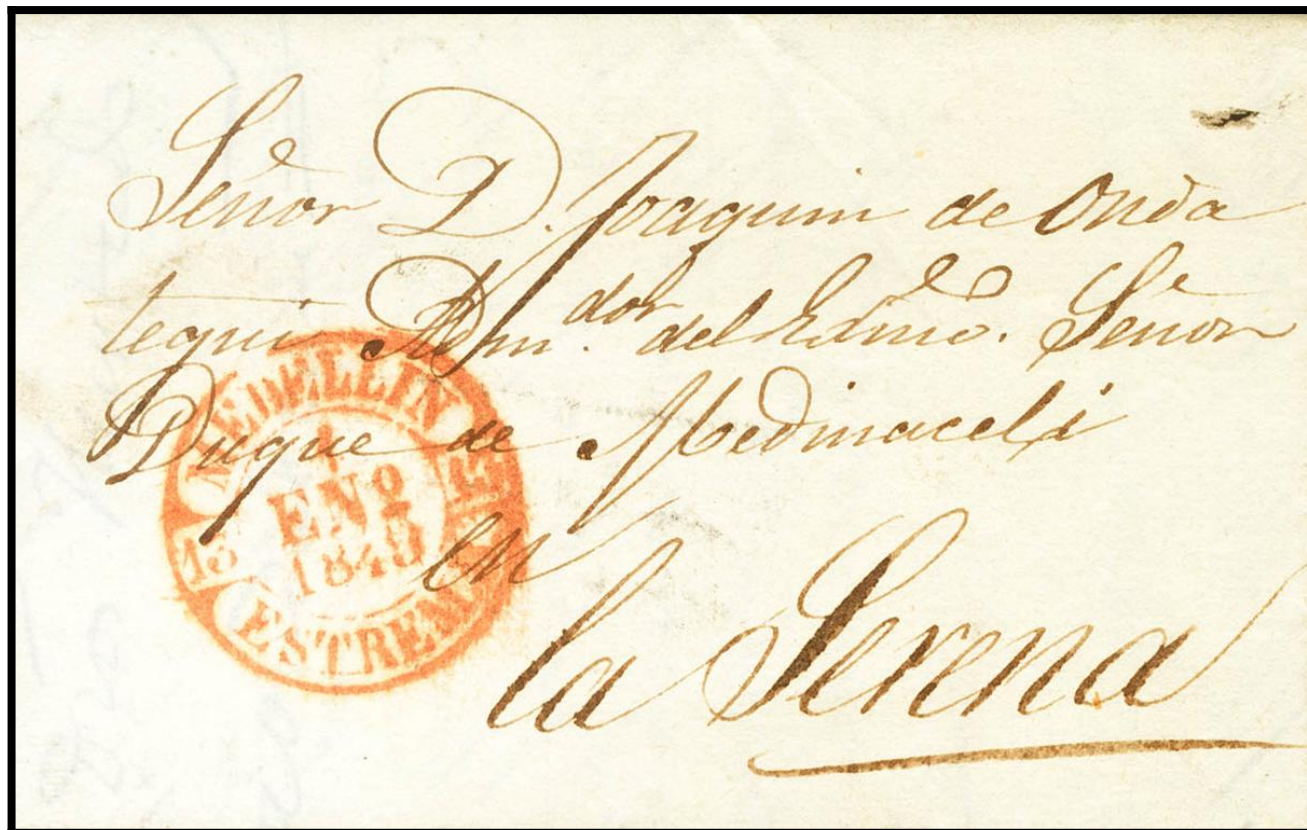 Señor D. Joaquin de Onda
tegui Adm.dor del Exmo. Señor
Duque de Medinaceli
en
la Serena
MEDELLIN
1
ENº
1845
13
ESTREM